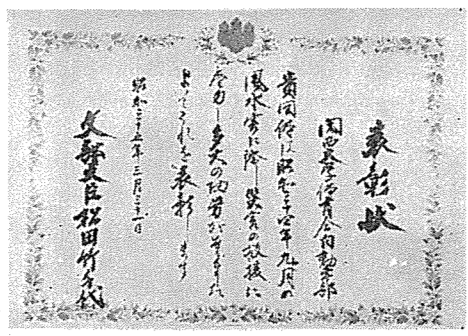 表彰状
関西大学体育会自動車部
貴団体は昭和三十四年九月の
風水害に際し災害の救援に
尽力し多大の功労がありました
よってこれを表彰します
昭和三十五年三月三十一日
文部大臣松田竹千代